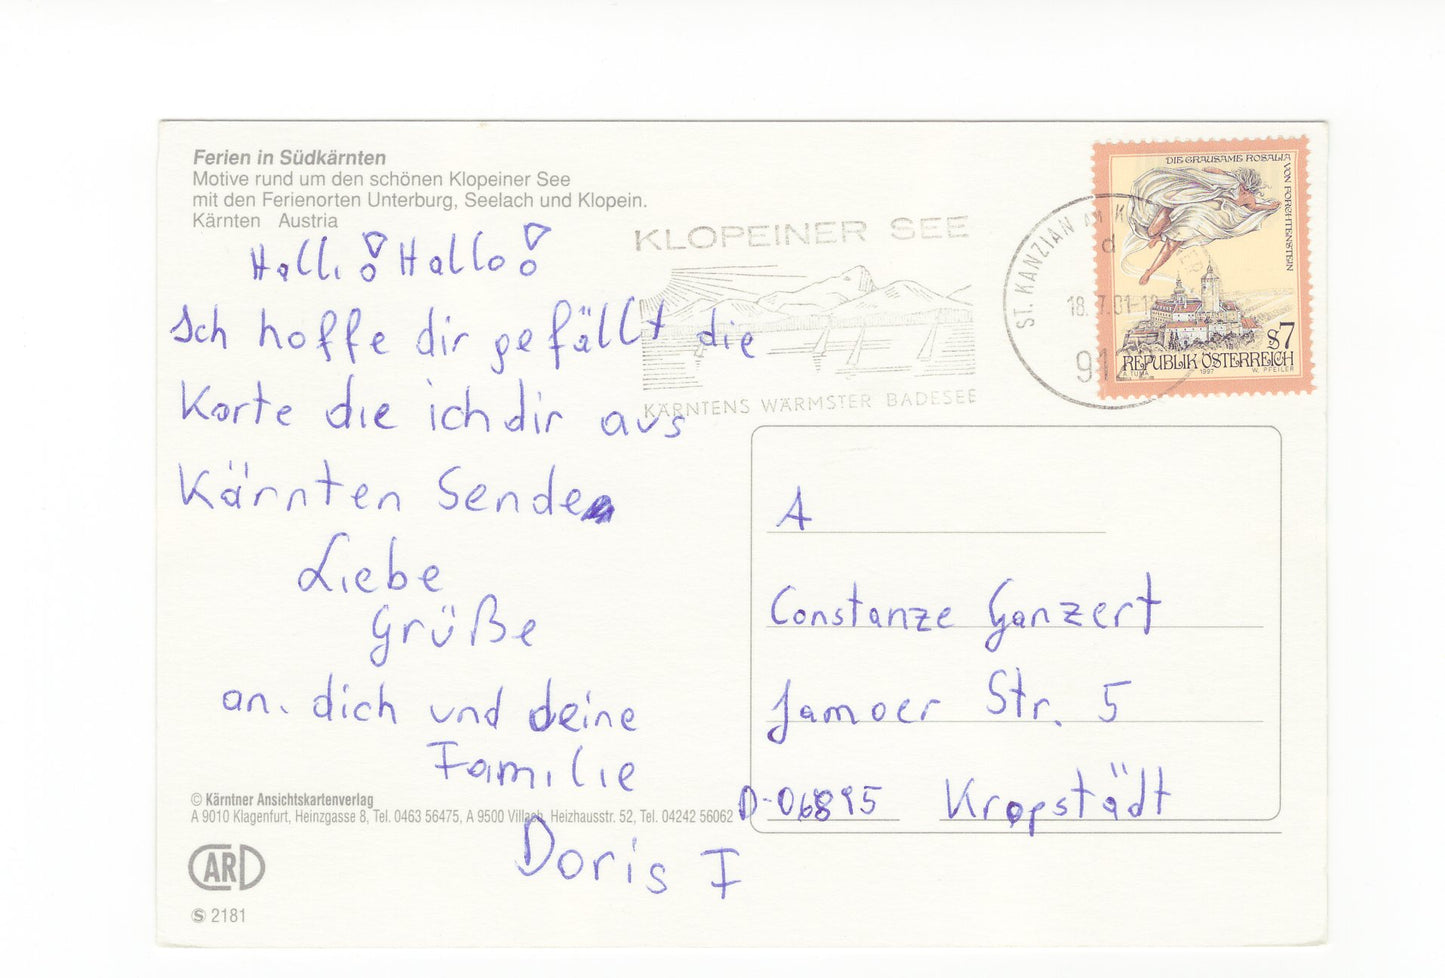 Ferien in Südkärnten
Motive rund um den schönen Klopeiner See
mit den Ferienorten Unterburg, Seelach und Klopein.
Kärnten Austria
Halli! Hallo!
Ich hoffe dir gefällt die
Karte die ich dir aus
Kärnten Sende
Liebe
Grüße
an. dich und deine
Familie
Doris I
© Kärntner Ansichtskartenverlag
A 9010 Klagenfurt, Heinzgasse 8, Tel. 0463 56475, A 9500 Villach, Heizhausstr. 52, Tel. 04242 56062
CARD
S 2181
KLOPEINER SEE
KÄRNTENS WÄRMSTER BADESEE
ST. KANZIAN AM
d
18.7.01-12
912
DIE GRAUSAME ROSALIA
VON FORCHTENSTEIN
S7
REPUBLIK ÖSTERREICH
A. TUMA 1997 W. PFEILER
A
Constanze Ganzert
Jamoer Str. 5
D-06895 Kropstädt